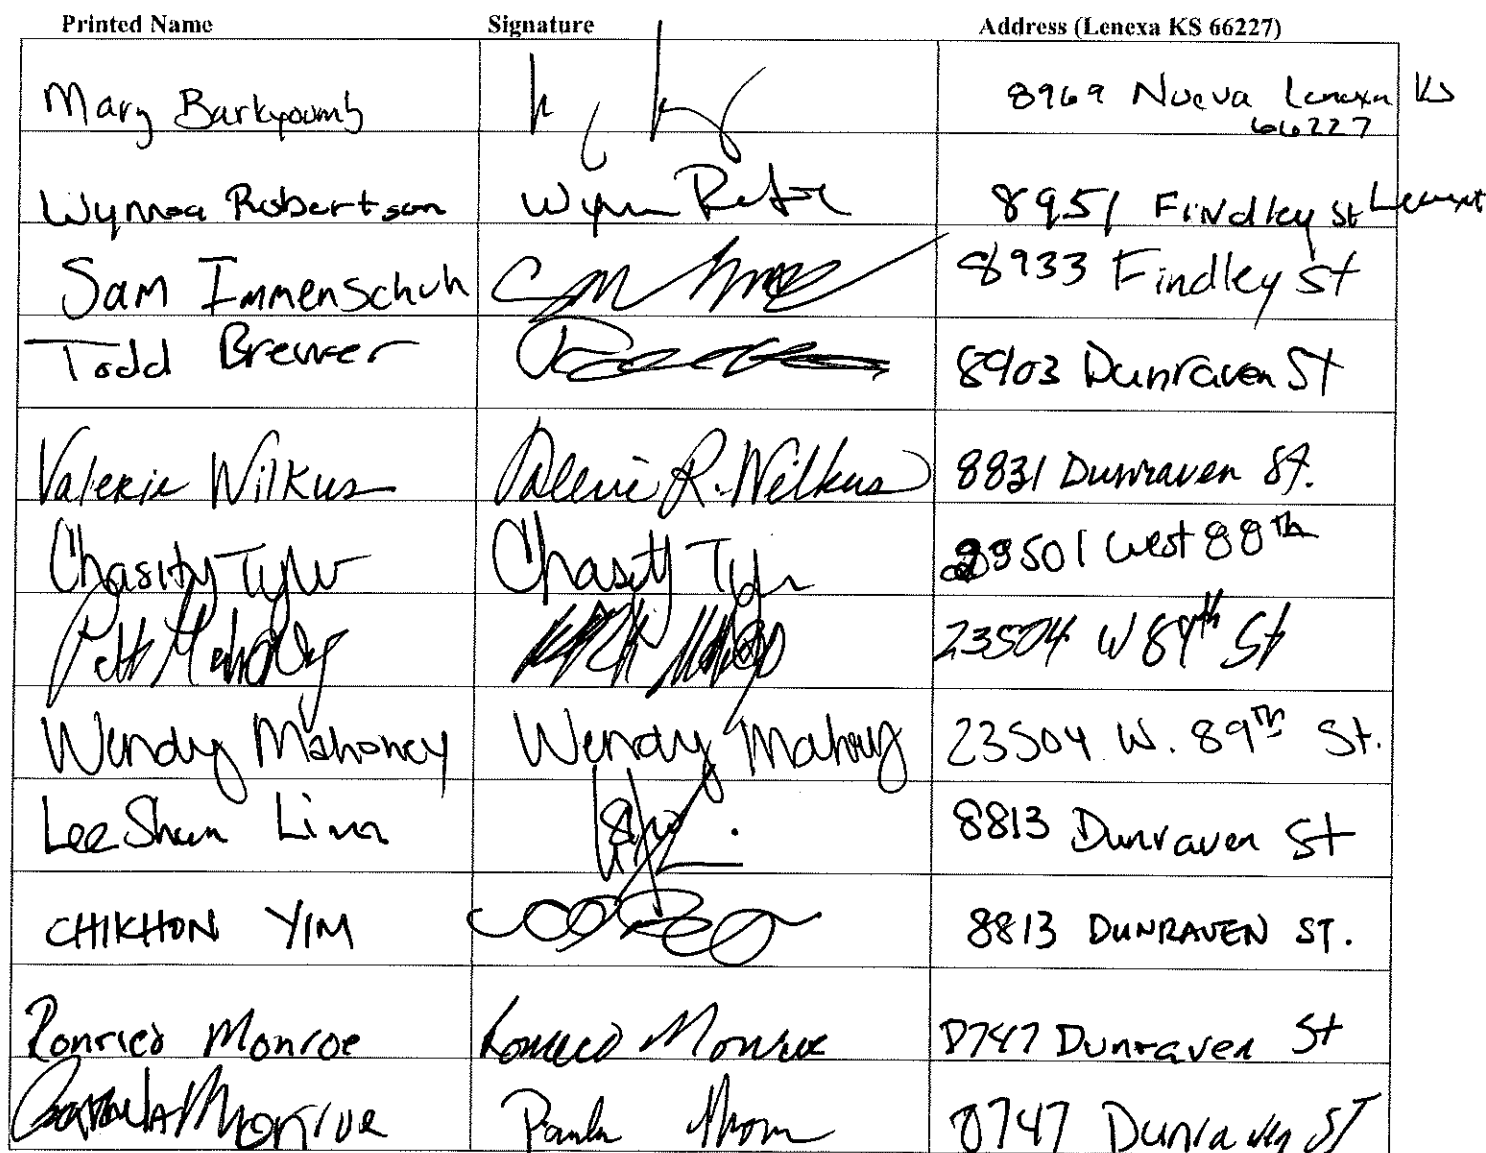 Printed Name Signature Address (Lenexa KS 66227)
Mary Barkyoumb 8969 Nueva Lenexa KS
66227
Wynnea Robertson 8951 Findley St Lenexa
Sam Immenschuh 8933 Findley St
Todd Brewer 8903 Dunraven St
Valerie Wilkus Valerie R. Wilkus 8831 Dunraven St.
Chasity Tyler Chasity Tyler 23501 West 88th
Mahoney 23504 W 89th St
Wendy Mahoney Wendy Mahoney 23504 W. 89th St.
Lee Shun Lim 8813 Dunraven St
CHIKHON YIM 8813 DUNRAVEN ST.
Monroe Monroe 8747 Dunraven St
Monroe Paula 8747 Dunraven ST